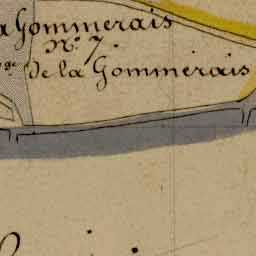 la Gommerais
N.º 7.
de la Gommerais